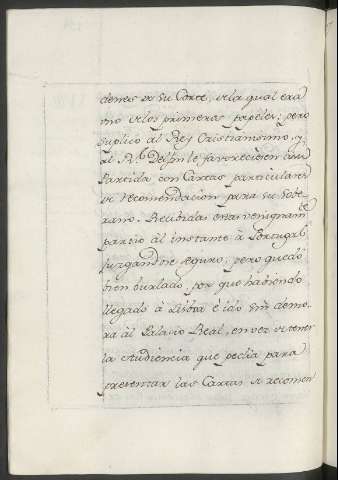 denes de su Corte, de la qual era u
no de los primeros papeles; pero
suplicó al Rey Cristianisimo, y
al Sr. Delfin le favoreciesen en su
Partida con Cartas particulares
de recomendacion para su Sobe-
rano. Recibidas estas venignamte
partio al instante á Portugal
juzgandose seguro; pero quedó
bien burlado, por que habiendo
llegado á Lisboa é ido sin demo-
ra al Palacio Real, en vez de tener
la Audiencia que pedia para
presentar las Cartas de recomen